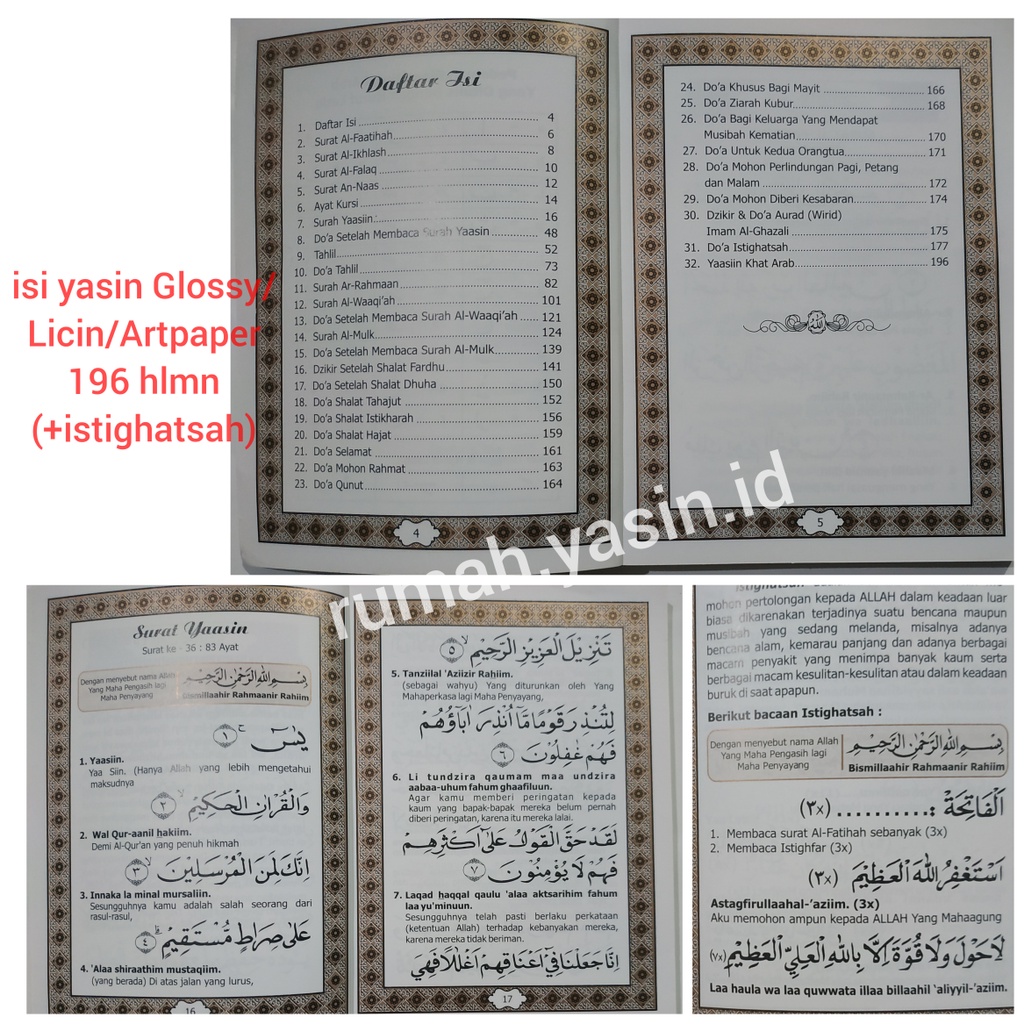 Daftar Isi
1. Daftar Isi 4
2. Surat Al-Faatihah 6
3. Surat Al-Ikhlash 8
4. Surat Al-Falaq 10
5. Surat An-Naas 12
6. Ayat Kursi 14
7. Surah Yaasiin 16
8. Do'a Setelah Membaca Surah Yaasin 48
9. Tahlil 52
10. Do'a Tahlil 73
11. Surah Ar-Rahmaan 82
12. Surah Al-Waaqi'ah 101
13. Do'a Setelah Membaca Surah Al-Waaqi'ah 121
14. Surah Al-Mulk 124
15. Do'a Setelah Membaca Surah Al-Mulk 139
16. Dzikir Setelah Shalat Fardhu 141
17. Do'a Setelah Shalat Dhuha 150
18. Do'a Shalat Tahajut 152
19. Do'a Shalat Istikharah 156
20. Do'a Shalat Hajat 159
21. Do'a Selamat 161
22. Do'a Mohon Rahmat 163
23. Do'a Qunut 164
4
24. Do'a Khusus Bagi Mayit 166
25. Do'a Ziarah Kubur 168
26. Do'a Bagi Keluarga Yang Mendapat
Musibah Kematian 170
27. Do'a Untuk Kedua Orangtua 171
28. Do'a Mohon Perlindungan Pagi, Petang
dan Malam 172
29. Do'a Mohon Diberi Kesabaran 174
30. Dzikir & Do'a Aurad (Wirid)
Imam Al-Ghazali 175
31. Do'a Istighatsah 177
32. Yaasiin Khat Arab 196
الله
5
isi yasin Glossy/
Licin/Artpaper
196 hlmn
(+istighatsah)
rumah.yasin.id
Surat Yaasin
Surat ke - 36 : 83 Ayat
Dengan menyebut nama Allah
Yang Maha Pengasih lagi
Maha Penyayang
بِسْمِ اللهِ الرَّحْمٰنِ الرَّحِيْمِ
Bismillaahir Rahmaanir Rahiim
يٰسۤ ۚ ١
1. Yaasiin.
Yaa Siin. (Hanya Allah yang lebih mengetahui
maksudnya
وَالْقُرْاٰنِ الْحَكِيْمِ ٢
2. Wal Qur-aanil hakiim.
Demi Al-Qur'an yang penuh hikmah
اِنَّكَ لَمِنَ الْمُرْسَلِيْنَ ٣
3. Innaka la minal mursaliin.
Sesungguhnya kamu adalah salah seorang dari
rasul-rasul,
عَلٰى صِرَاطٍ مُّسْتَقِيْمٍ ٤
4. 'Alaa shiraathim mustaqiim.
(yang berada) Di atas jalan yang lurus,
16
تَنْزِيْلَ الْعَزِيْزِ الرَّحِيْمِ ٥
5. Tanziilal 'Aziizir Rahiim.
(sebagai wahyu) Yang diturunkan oleh Yang
Mahaperkasa lagi Maha Penyayang,
لِتُنْذِرَ قَوْمًا مَّآ اُنْذِرَ اٰبَاۤؤُهُمْ
فَهُمْ غٰفِلُوْنَ ٦
6. Li tundzira qaumam maa undzira
aabaa-uhum fahum ghaafiluun.
Agar kamu memberi peringatan kepada
kaum yang bapak-bapak mereka belum pernah
diberi peringatan, karena itu mereka lalai.
لَقَدْ حَقَّ الْقَوْلُ عَلٰٓى اَكْثَرِهِمْ
فَهُمْ لَا يُؤْمِنُوْنَ ٧
7. Laqad haqqal qaulu 'alaa aktsarihim fahum
laa yu'minuun.
Sesungguhnya telah pasti berlaku perkataan
(ketentuan Allah) terhadap kebanyakan mereka,
karena mereka tidak beriman.
اِنَّا جَعَلْنَا فِيْٓ اَعْنَاقِهِمْ اَغْلٰلًا فَهِيَ
17
mohon pertolongan kepada ALLAH dalam keadaan luar
biasa dikarenakan terjadinya suatu bencana maupun
musibah yang sedang melanda, misalnya adanya
bencana alam, kemarau panjang dan adanya berbagai
macam penyakit yang menimpa banyak kaum serta
berbagai macam kesulitan-kesulitan atau dalam keadaan
buruk di saat apapun.
Berikut bacaan Istighatsah :
Dengan menyebut nama Allah
Yang Maha Pengasih lagi
Maha Penyayang
بِسْمِ اللهِ الرَّحْمٰنِ الرَّحِيْمِ
Bismillaahir Rahmaanir Rahiim
اَلْفَاتِحَةْ : .......... (٣x)
1. Membaca surat Al-Fatihah sebanyak (3x)
2. Membaca Istighfar (3x)
اَسْتَغْفِرُ اللهَ الْعَظِيْمَ (٣x)
Astagfirullaahal-'aziim. (3x)
Aku memohon ampun kepada ALLAH Yang Mahaagung
لَاحَوْلَ وَلَا قُوَّةَ اِلَّا بِاللهِ الْعَلِيِّ الْعَظِيْمِ (٧x)
Laa haula wa laa quwwata illaa billaahil 'aliyyil-'aziim.